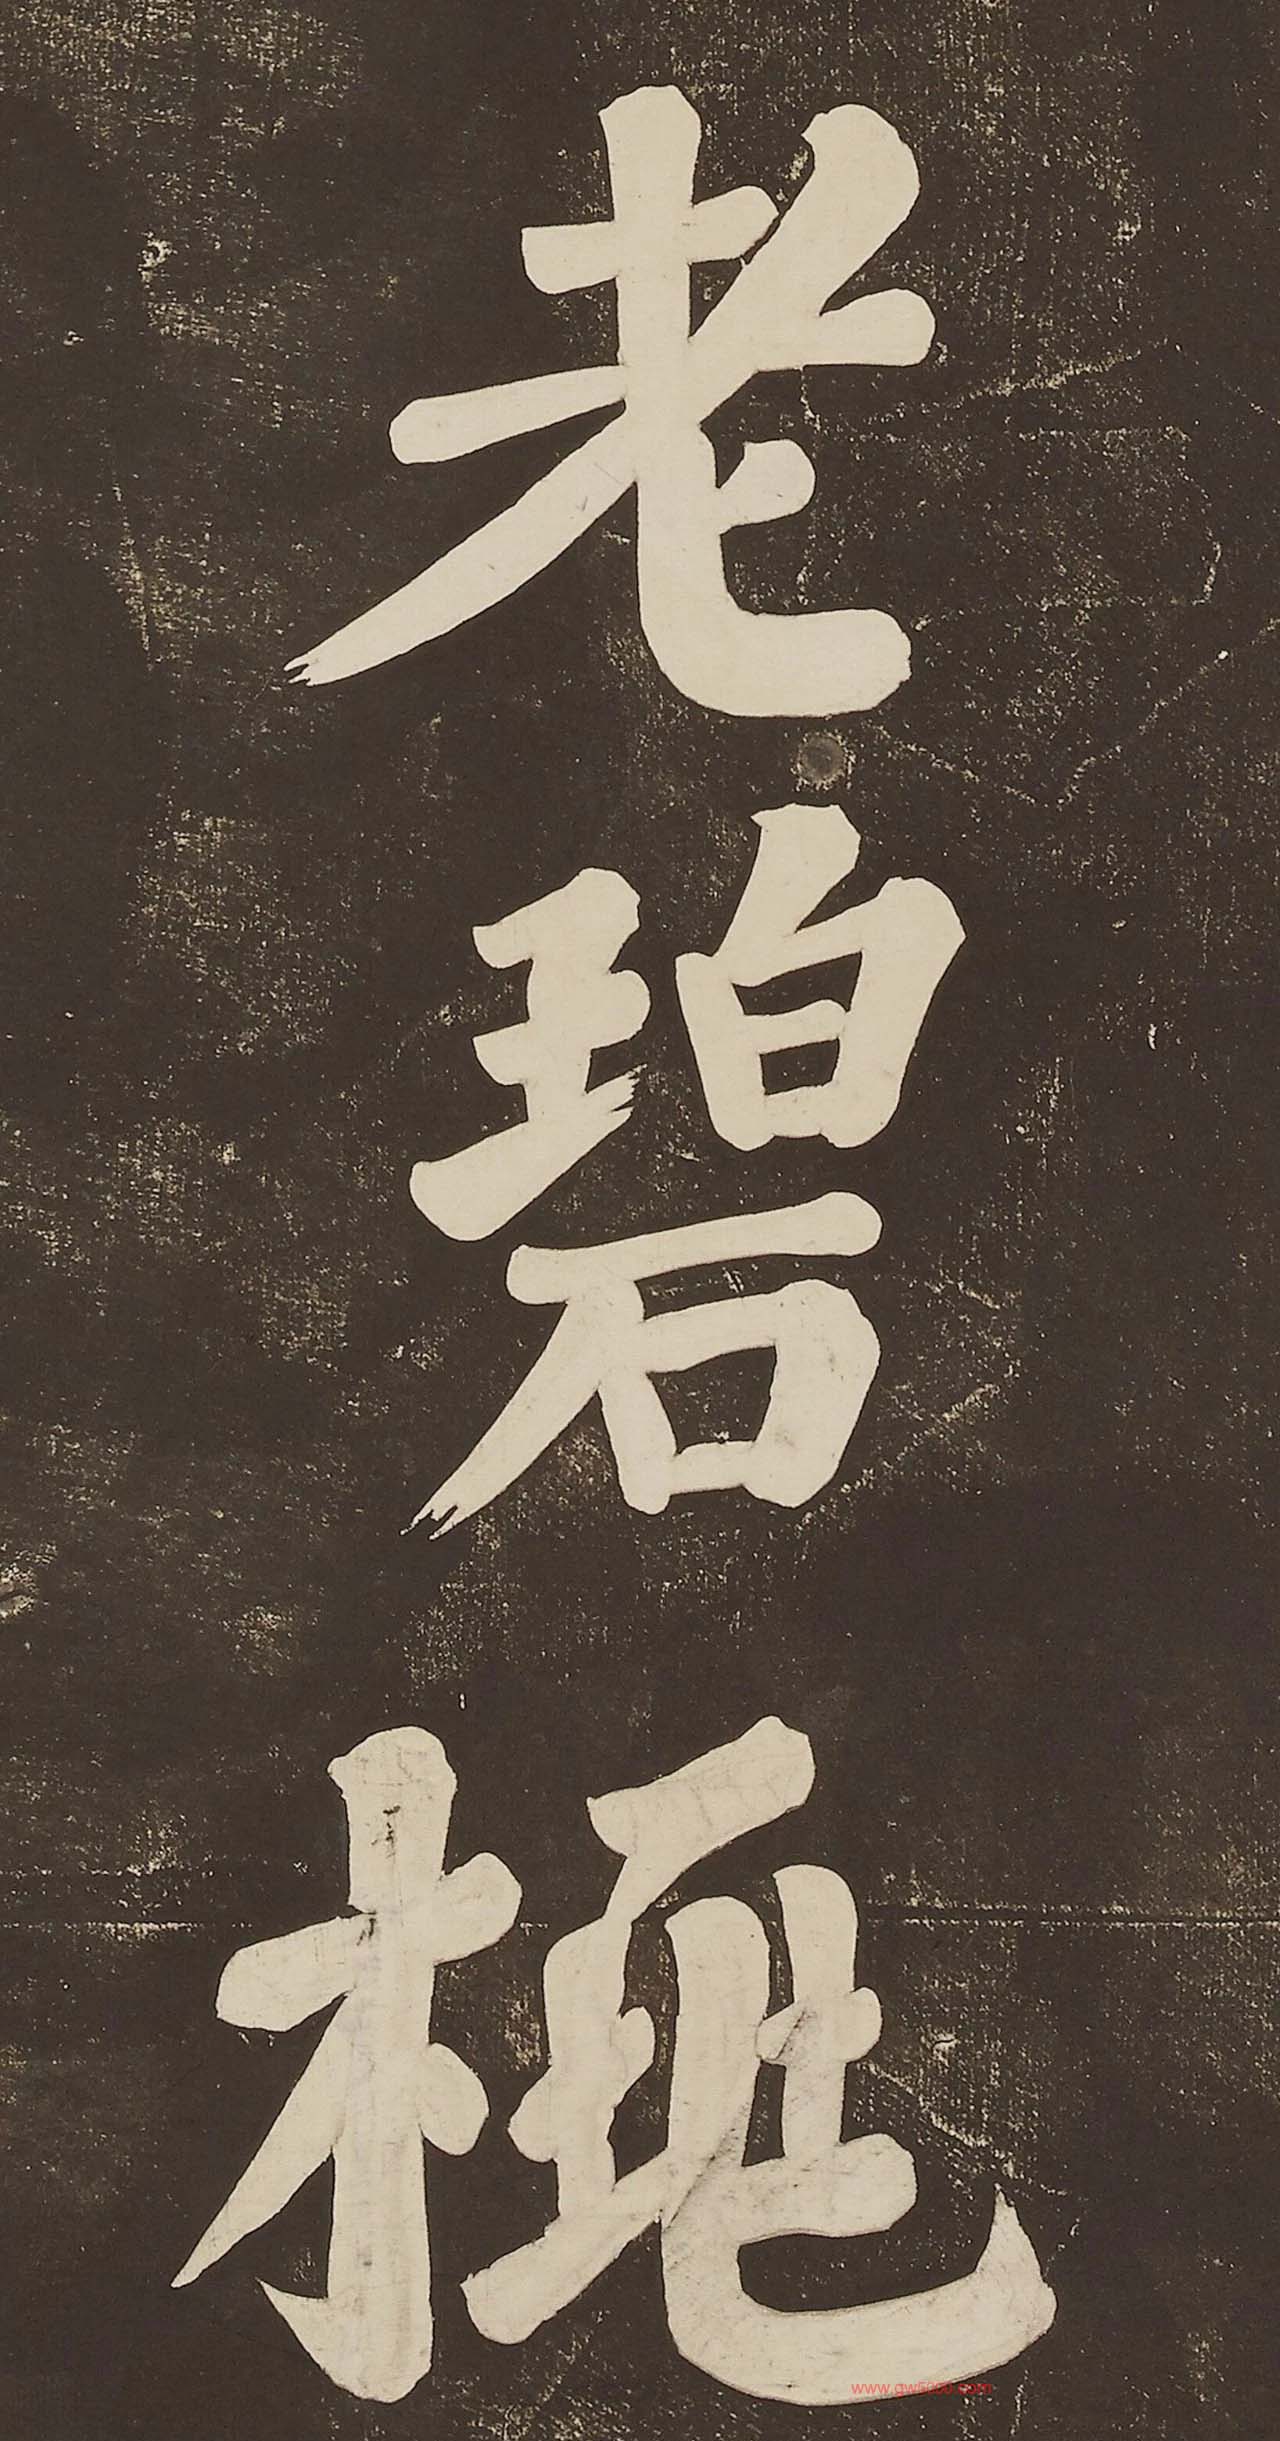 老碧
www.gw5000.com